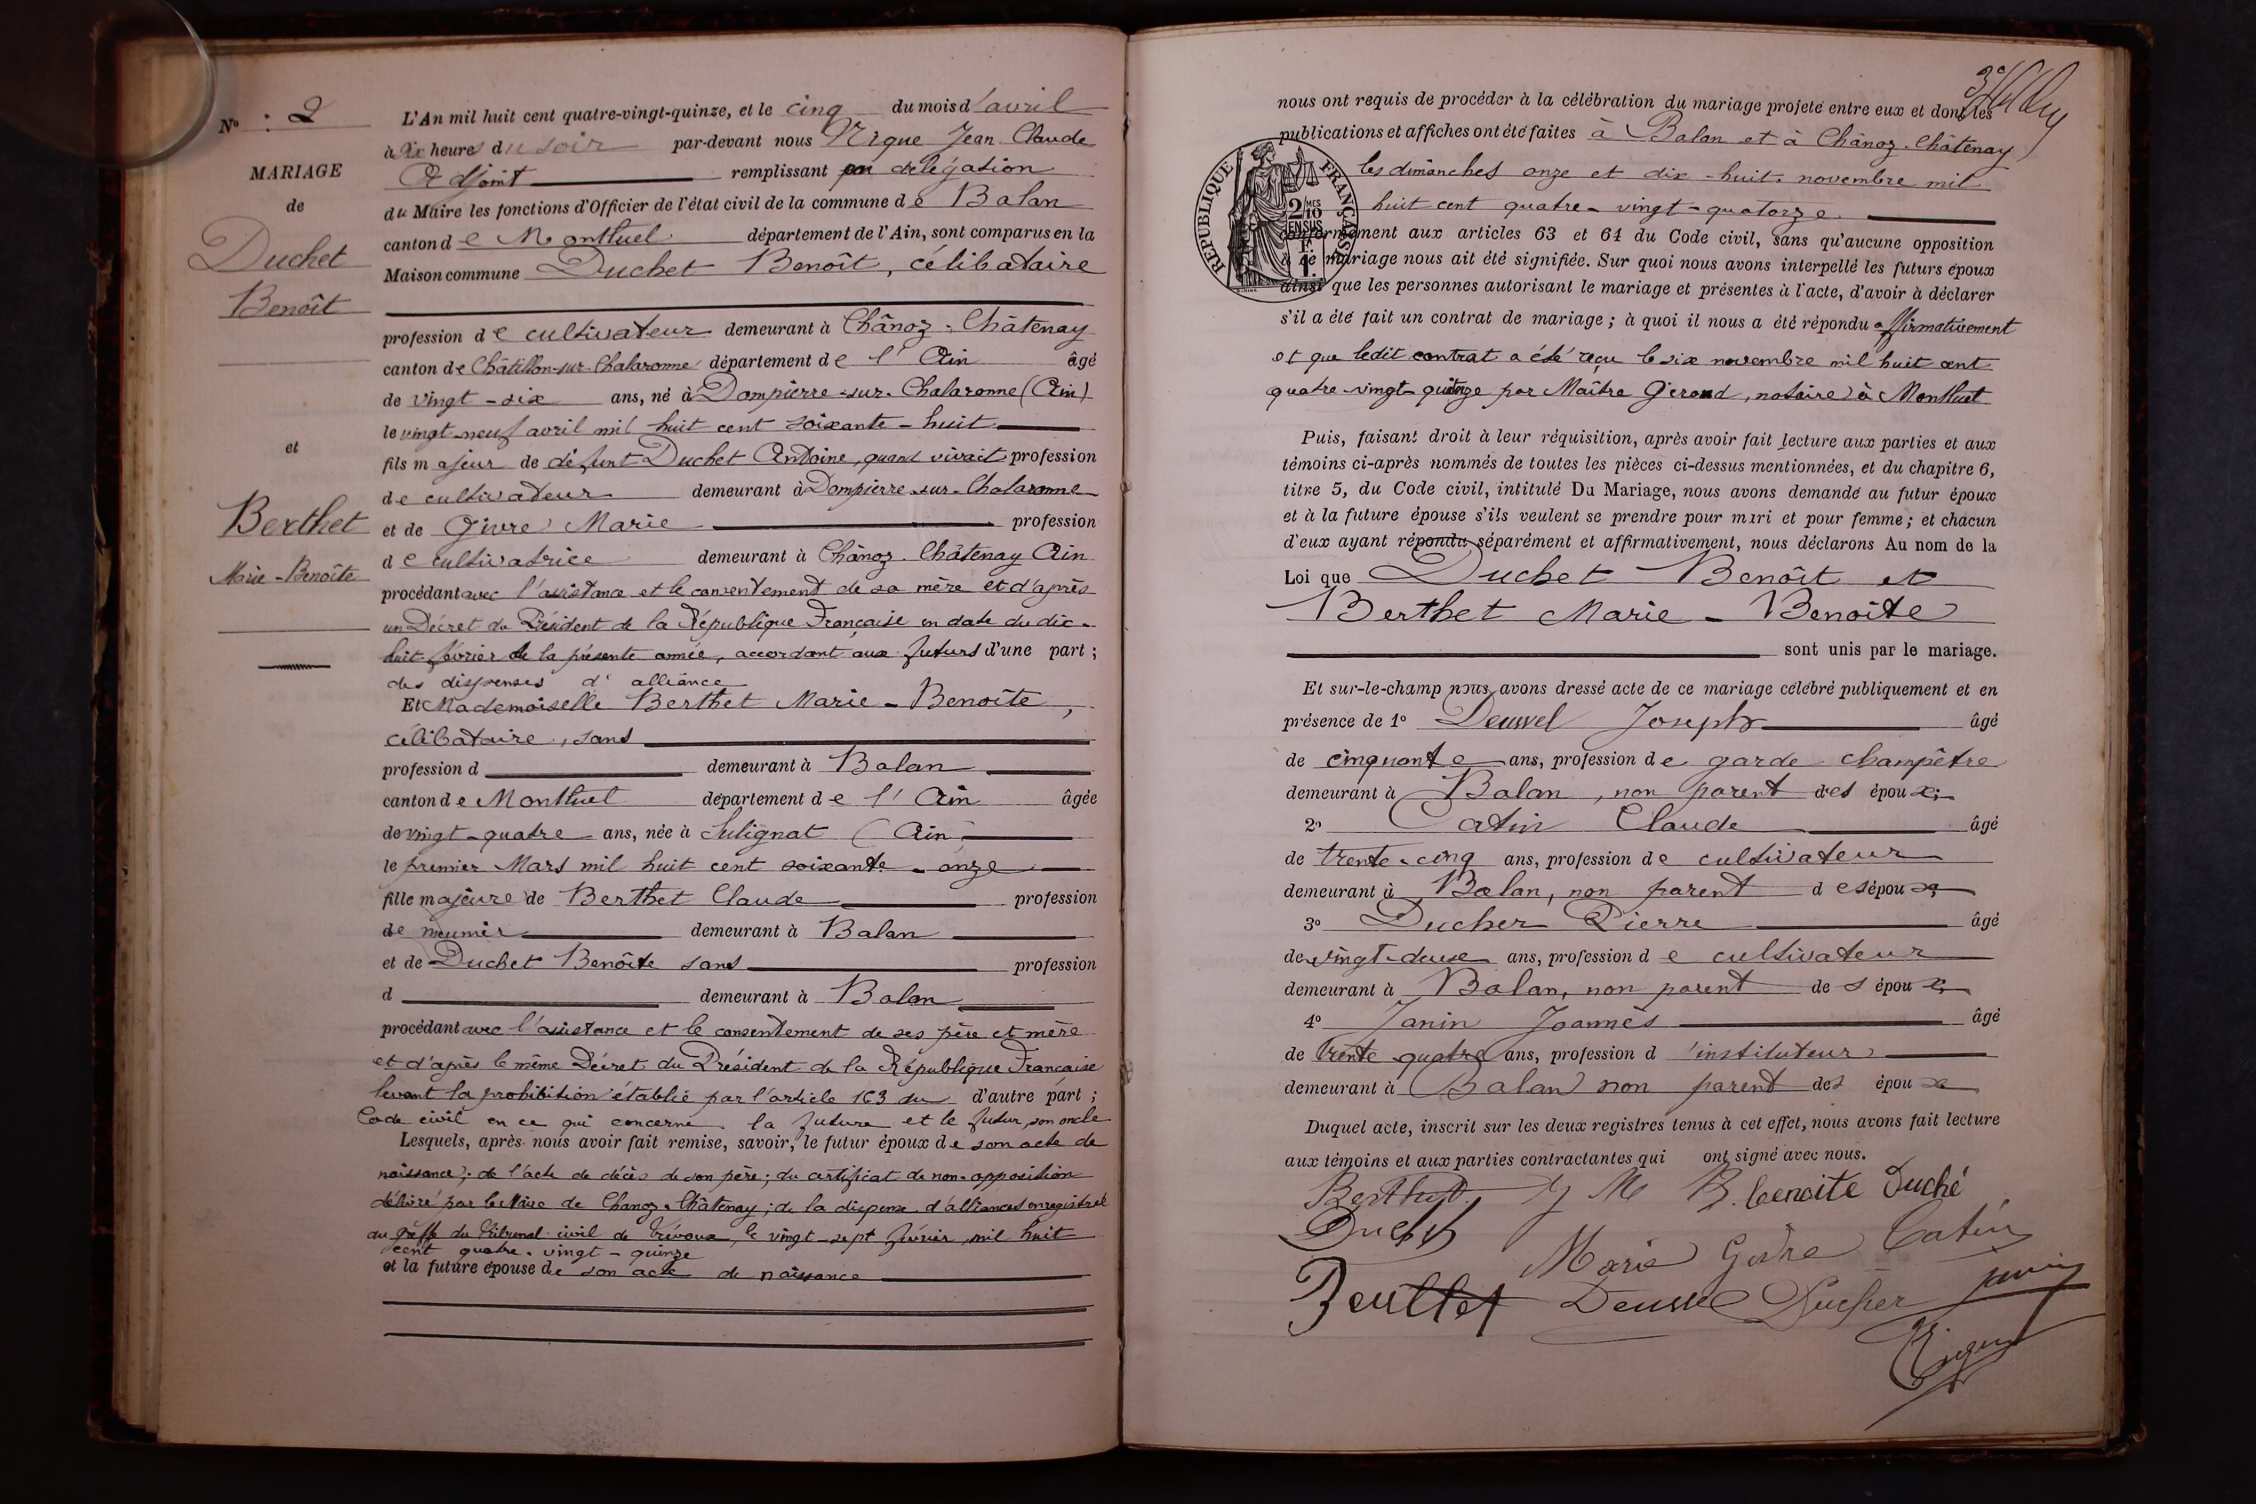 No : 2
MARIAGE
de
Duchet
Benoît
et
Berthet
Marie-Benoîte
L'An mil huit cent quatre-vingt-quinze, et le cinq du mois d'avril
à six heures du soir par-devant nous Jean Claude
Adjoint remplissant par délégation
du Maire les fonctions d'Officier de l'état civil de la commune de Balan
canton de Montluel département de l'Ain, sont comparus en la
Maison commune Duchet Benoît, célibataire
profession de cultivateur demeurant à Chânoz-Châtenay
canton de Châtillon-sur-Chalaronne département de l'Ain âgé
de vingt-six ans, né à Dompierre-sur-Chalaronne (Ain)
le vingt-neuf avril mil huit cent soixante-huit
fils majeur de défunt Duchet Antoine, quand vivait profession
de cultivateur demeurant à Dompierre-sur-Chalaronne
et de Givre Marie profession
de cultivatrice demeurant à Chânoz-Châtenay Ain
procédant avec l'assistance et le consentement de sa mère et d'après
un Décret du Président de la République Française en date du dix-
huit février de la présente année, accordant aux futurs d'une part ;
des dispenses d'alliance
Et Mademoiselle Berthet Marie-Benoîte,
célibataire, sans
profession d demeurant à Balan
canton de Montluel département de l'Ain âgée
de vingt-quatre ans, née à Sulignat (Ain)
le premier Mars mil huit cent soixante-onze
fille majeure de Berthet Claude profession
de meunier demeurant à Balan
et de Duchet Benoîte sans profession
d demeurant à Balan
procédant avec l'assistance et le consentement de ses père et mère
et d'après le même Décret du Président de la République Française
levant la prohibition établie par l'article 163 du d'autre part ;
Code civil en ce qui concerne la future et le futur, son oncle
Lesquels, après nous avoir fait remise, savoir, le futur époux de son acte de
naissance ; de l'acte de décès de son père ; du certificat de non-opposition
délivré par le Maire de Chanoz-Châtenay ; de la dispense d'alliances enregistrée
au greffe du tribunal civil de Trévoux, le vingt-sept février, mil huit
cent quatre-vingt-quinze
et la future épouse de son acte de naissance
nous ont requis de procéder à la célébration du mariage projeté entre eux et dont les
publications et affiches ont été faites à Balan et à Chânoz-Châtenay
les dimanches onze et dix-huit novembre mil
huit cent quatre-vingt-quatorze
RÉPUBLIQUE FRANÇAISE
2/10 MES EN SUS
conformément aux articles 63 et 64 du Code civil, sans qu'aucune opposition
à ce mariage nous ait été signifiée. Sur quoi nous avons interpellé les futurs époux
ainsi que les personnes autorisant le mariage et présentes à l'acte, d'avoir à déclarer
s'il a été fait un contrat de mariage ; à quoi il nous a été répondu affirmativement
et que ledit contrat a été reçu le six novembre mil huit cent
quatre-vingt- par Maître , notaire à Montluel
Puis, faisant droit à leur réquisition, après avoir fait lecture aux parties et aux
témoins ci-après nommés de toutes les pièces ci-dessus mentionnées, et du chapitre 6,
titre 5, du Code civil, intitulé Du Mariage, nous avons demandé au futur époux
et à la future épouse s'ils veulent se prendre pour mari et pour femme ; et chacun
d'eux ayant répondu séparément et affirmativement, nous déclarons Au nom de la
Loi que Duchet Benoît et
Berthet Marie-Benoîte
sont unis par le mariage.
Et sur-le-champ nous avons dressé acte de ce mariage célébré publiquement et en
présence de 1° Deussel Joseph âgé
de cinquante ans, profession de garde champêtre
demeurant à Balan, non parent des époux ;
2° Catin Claude âgé
de trente-cinq ans, profession de cultivateur
demeurant à Balan, non parent des époux ;
3° Ducher Pierre âgé
de vingt-deux ans, profession de cultivateur
demeurant à Balan, non parent des époux ;
4° Janin Joannès âgé
de trente-quatre ans, profession d'instituteur
demeurant à Balan non parent des époux
Duquel acte, inscrit sur les deux registres tenus à cet effet, nous avons fait lecture
aux témoins et aux parties contractantes qui ont signé avec nous.
Berthet M B. benoite Duché
Marie Givre Catin
Deussel Ducher Janin